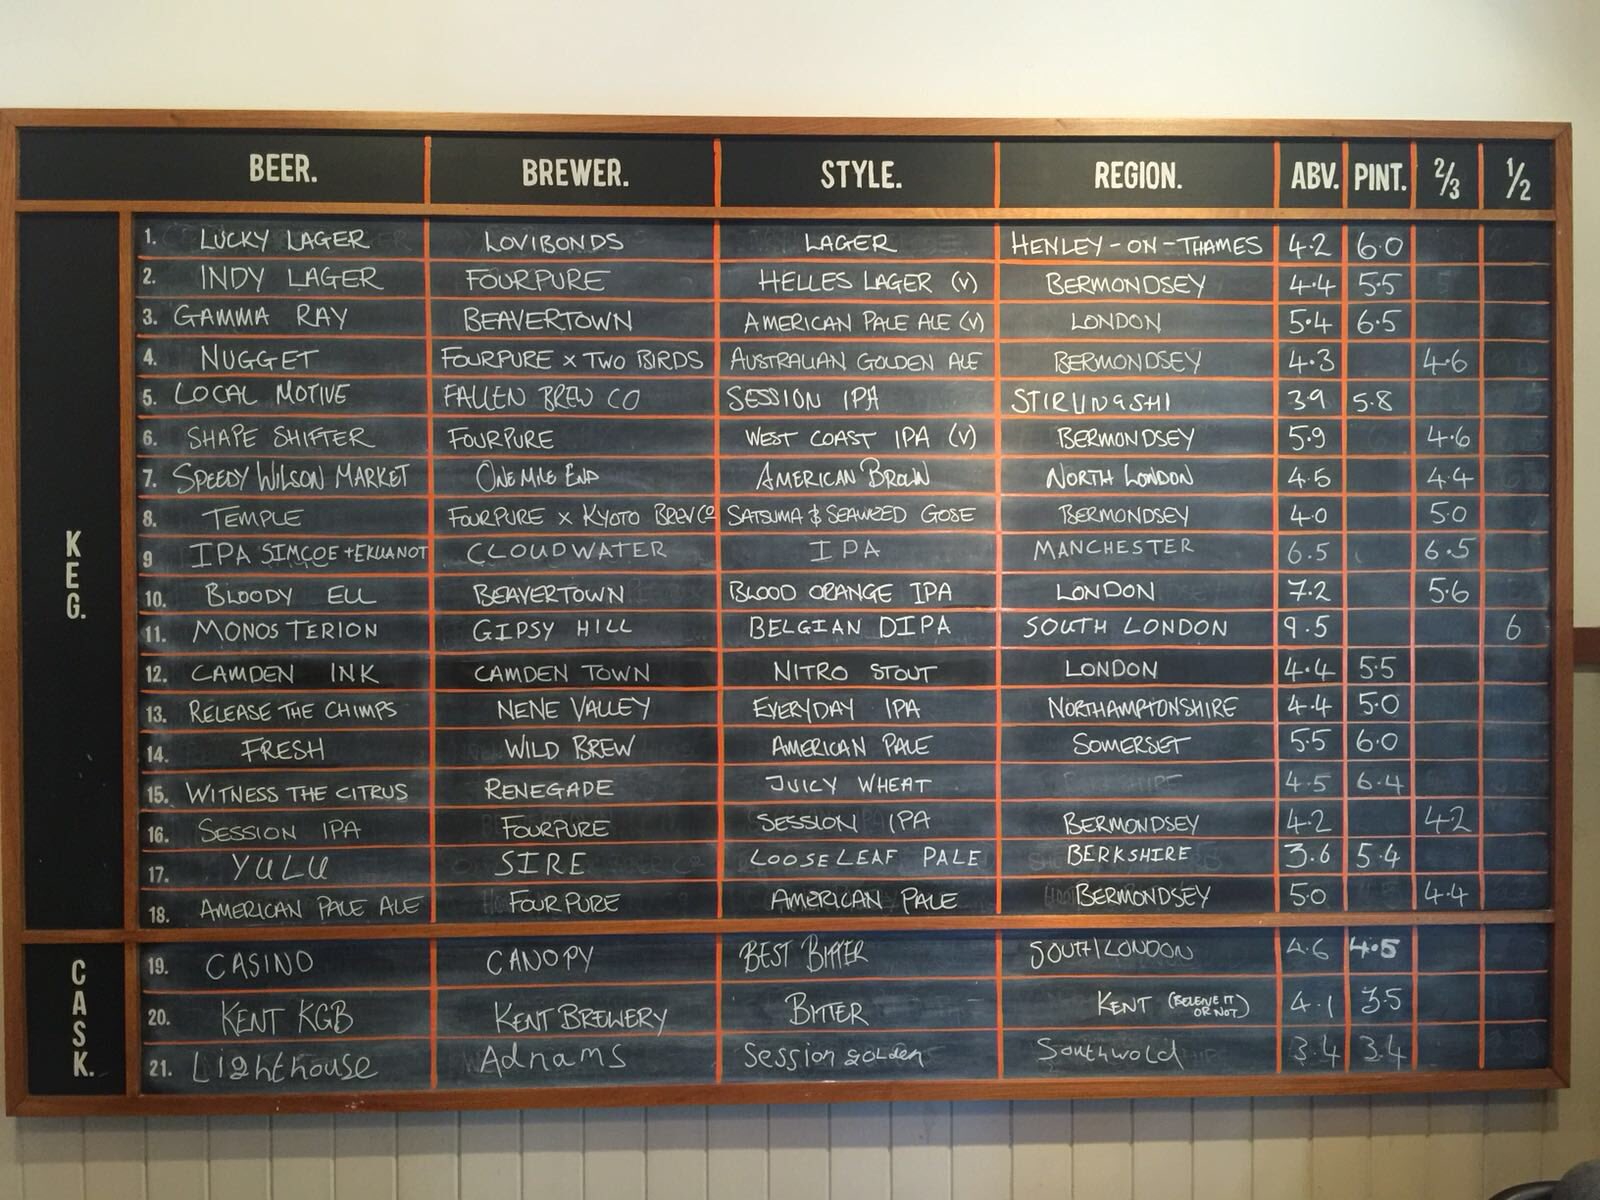 BEER. BREWER. STYLE. REGION. ABV. PINT. 2/3 1/2
KEG.
1. LUCKY LAGER LOVIBONDS LAGER HENLEY-ON-THAMES 4.2 6.0
2. INDY LAGER FOURPURE HELLES LAGER (V) BERMONDSEY 4.4 5.5
3. GAMMA RAY BEAVERTOWN AMERICAN PALE ALE (V) LONDON 5.4 6.5
4. NUGGET FOURPURE x TWO BIRDS AUSTRALIAN GOLDEN ALE BERMONDSEY 4.3 4.6
5. LOCAL MOTIVE FALLEN BREW CO SESSION IPA STIRLINGSHI 39 5.8
6. SHAPE SHIFTER FOURPURE WEST COAST IPA (V) BERMONDSEY 5.9 4.6
7. SPEEDY WILSON MARKET ONE MILE END AMERICAN BROWN NORTH LONDON 4.5 4.4
8. TEMPLE FOURPURE x KYOTO BREW CO SATSUMA & SEAWEED GOSE BERMONDSEY 4.0 5.0
9 IPA SIMCOE + EKUANOT CLOUDWATER IPA MANCHESTER 6.5 6.5
10. BLOODY ELL BEAVERTOWN BLOOD ORANGE IPA LONDON 7.2 5.6
11. MONOS TERION GIPSY HILL BELGIAN DIPA SOUTH LONDON 9.5 6
12. CAMDEN INK CAMDEN TOWN NITRO STOUT LONDON 4.4 5.5
13. RELEASE THE CHIMPS NENE VALLEY EVERYDAY IPA NORTHAMPTONSHIRE 4.4 5.0
14. FRESH WILD BREW AMERICAN PALE SOMERSET 5.5 6.0
15. WITNESS THE CITRUS RENEGADE JUICY WHEAT 4.5 6.4
16. SESSION IPA FOURPURE SESSION IPA BERMONDSEY 4.2 4.2
17. YULU SIRE LOOSE LEAF PALE BERKSHIRE 3.6 5.4
18. AMERICAN PALE ALE FOURPURE AMERICAN PALE BERMONDSEY 5.0 4.4
CASK.
19. CASINO CANOPY BEST BITTER SOUTH LONDON 4.6 4.5
20. KENT KGB KENT BREWERY BITTER KENT (BELIEVE IT OR NOT) 4.1 3.5
21. Lighthouse Adnams Session golden Southwold 3.4 3.4